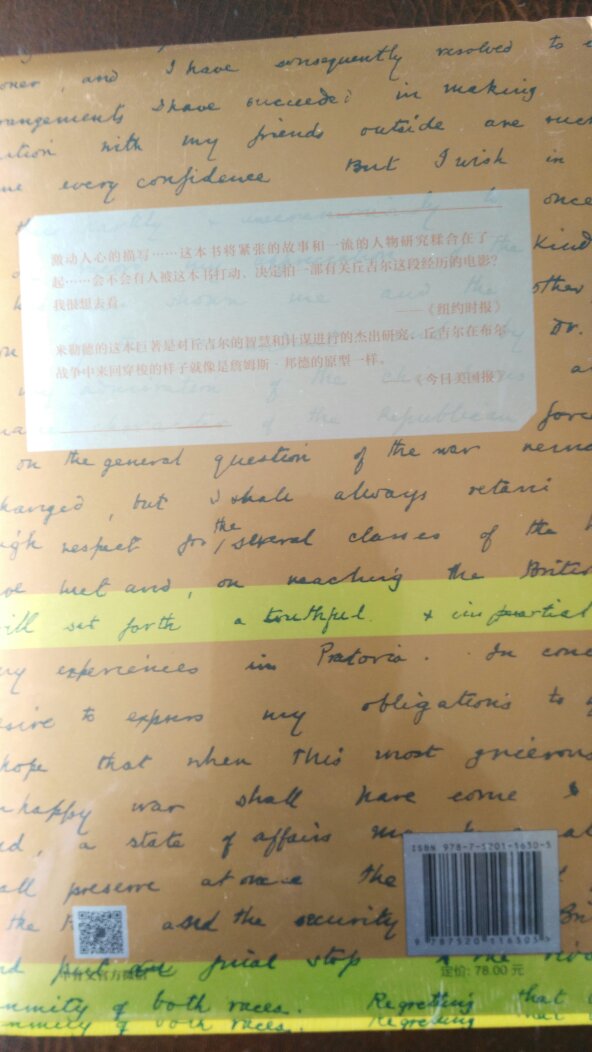 oner, and I have consequently resolved to
rangements I have succeeded in making
ution with my friends outside are such
me every confidence But I wish in
once
激动人心的描写……这本书将紧张的故事和一流的人物研究糅合在了一
起……会不会有人被这本书打动、决定拍一部有关丘吉尔这段经历的电影?
我很想去看。
——《纽约时报》
kind
other
米勒德的这本巨著是对丘吉尔的智慧和计谋进行的杰出研究。丘吉尔在布尔
战争中来回穿梭的样子就像是詹姆斯·邦德的原型一样。
——《今日美国报》
Dr.
of the Republican force
on the general question of the war
hanged, but I shall always retain
igh respect for the several classes of the
ve met and, on reaching the British
ill set forth a truthful & impartial
my experiences in Pretoria. In conc
esire to express my obligations to
hope that when this most grievous
nhappy war shall have come
d, a state of affairs
all preserve at once the
the and the security
final stop
ISBN 978-7-5201-1630-5
9 787520 116305 >
定价: 78.00 元
甲骨文官方微信
mmity of both races. Regretting that
mmity of both races. Regretting